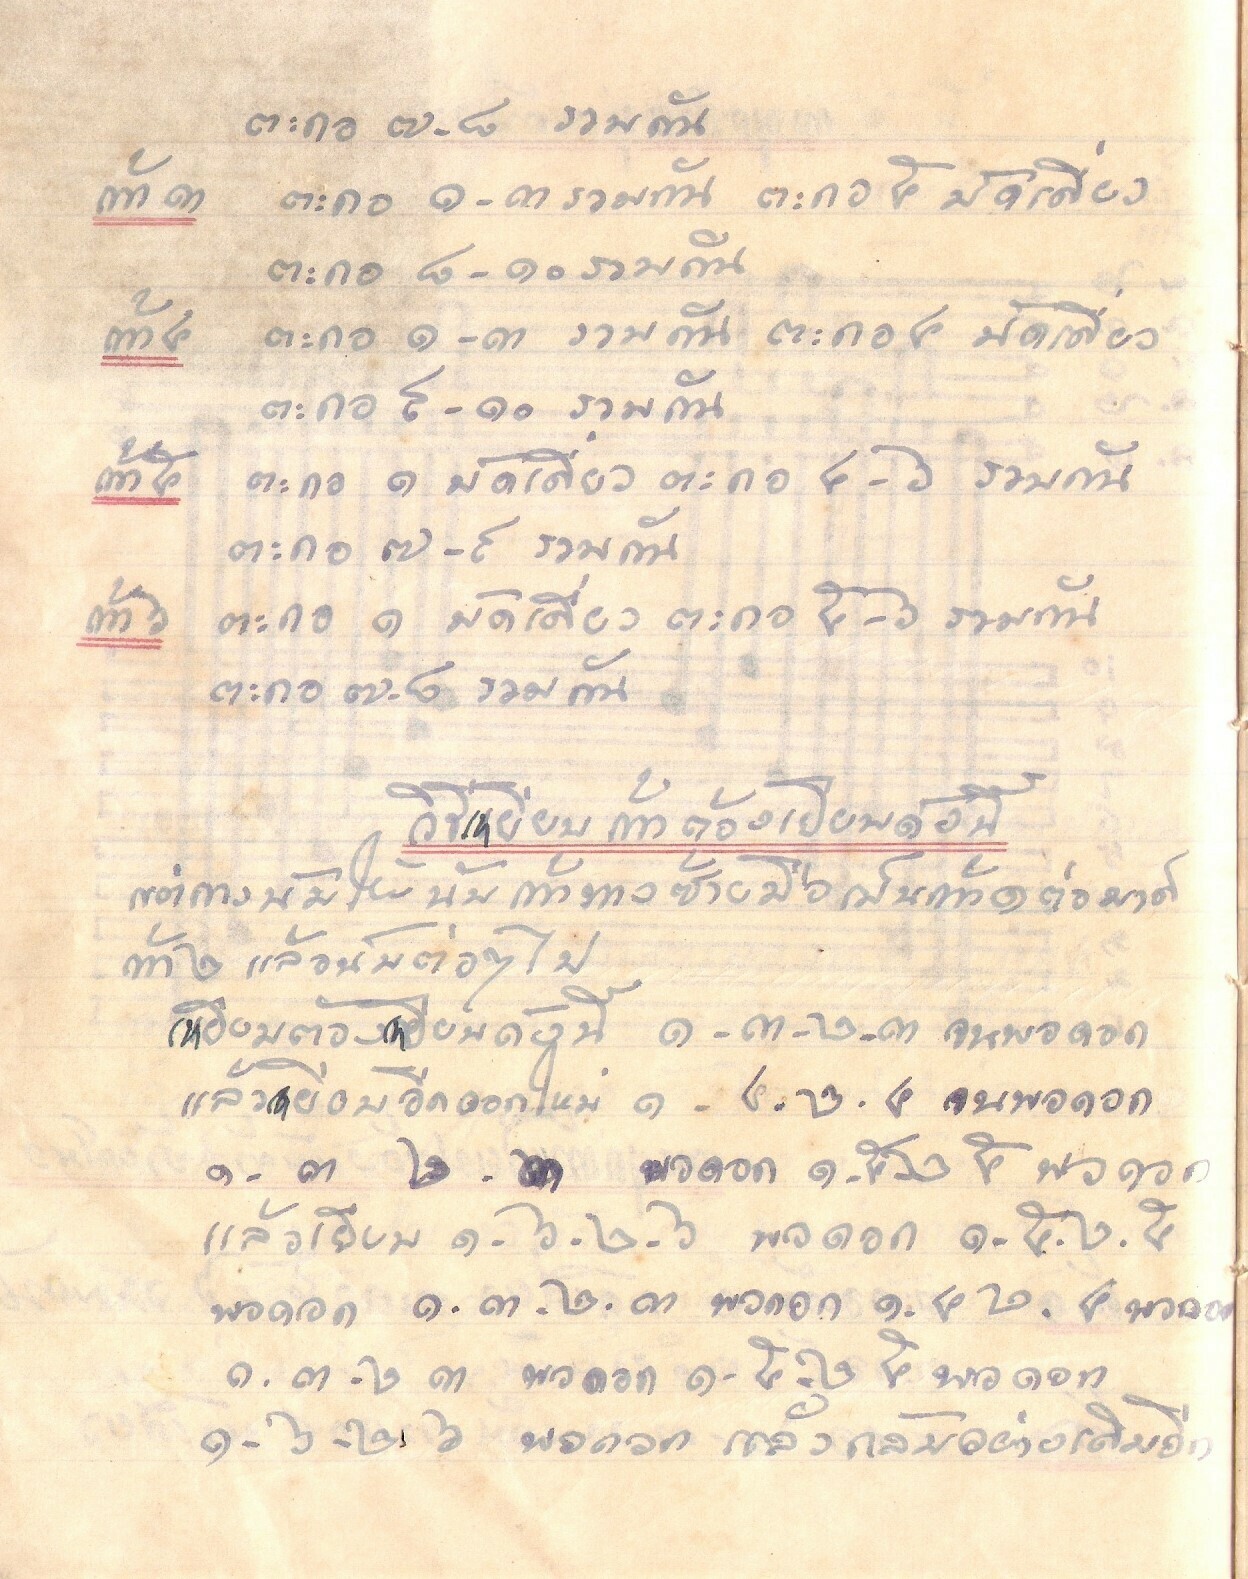 ตะกอ ๗-๘ รวมกัน
ก้า ๓ ตะกอ ๑-๓ รวมกัน ตะกอ ๕ มัดเดี่ยว
ตะกอ ๘-๑๐ รวมกัน
ก้า ๔ ตะกอ ๑-๓ รวมกัน ตะกอ ๔ มัดเดี่ยว
ตะกอ ๙-๑๐ รวมกัน
ก้า ๕ ตะกอ ๑ มัดเดี่ยว ตะกอ ๔-๖ รวมกัน
ตะกอ ๗-๙ รวมกัน
ก้า ๖ ตะกอ ๑ มัดเดี่ยว ตะกอ ๕-๖ รวมกัน
ตะกอ ๗-๘ รวมกัน
วิธีเหยียบ ก้าต้องเยียบดังนี้
แต่การนับให้นับก้าทางซ้ายมือเป็นก้า๑ต่อมาก็
ก้า๒ แล้วนับต่อๆไป
เหยียบต้องเหยียบดังนี้ ๑-๓-๒-๓ จนพอดอก
แล้วเหยียบอีกดอกใหม่ ๑-๔.๒.๔ จนพอดอก
๑-๓ ๒-๓ พอดอก ๑-๕-๒ ๕ พอดอก
แล้วเยียบ ๑-๖-๒-๖ พอดอก ๑-๕.๒.๕
พอดอก ๑.๓-๒.๓ พอดอก ๑.๔ ๒.๔ พอดอก
๑.๓-๒ ๓ พอดอก ๑-๕-๒ ๕ พอดอก
๑-๖-๒ ๖ พอดอก แล้วกลับอย่างเดิมอีก